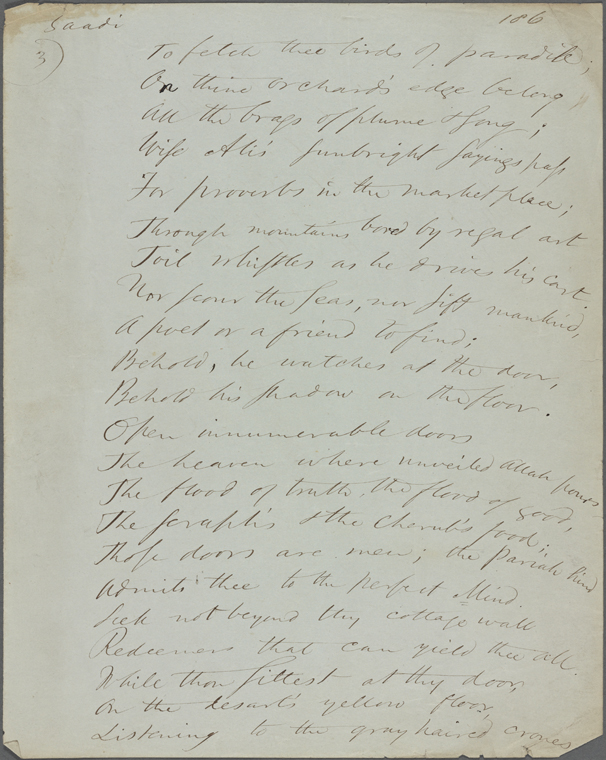 Saadi
186
3
To fetch thee birds of paradise;
On thine orchard's edge belong
All the brags of plume & song;
Wise Ali's sunbright sayings pass
For proverbs in the market place;
Through mountains bored by regal art
Toil whistles as he drives his cart.
Nor scour the seas, nor sift mankind,
A poet or a friend to find;
Behold, he watches at the door,
Behold his shadow on the floor.
Open innumerable doors
The heaven where unveiled Allah pours
The flood of truth, the flood of good,
The seraph's & the cherub's food;
Those doors are men; the Pariah kind
Admits thee to the perfect Mind.
Seek not beyond thy cottage wall
Redeemers that can yield thee all.
While thou sittest at thy door,
On the desart's yellow floor,
Listening to the grayhaired crones